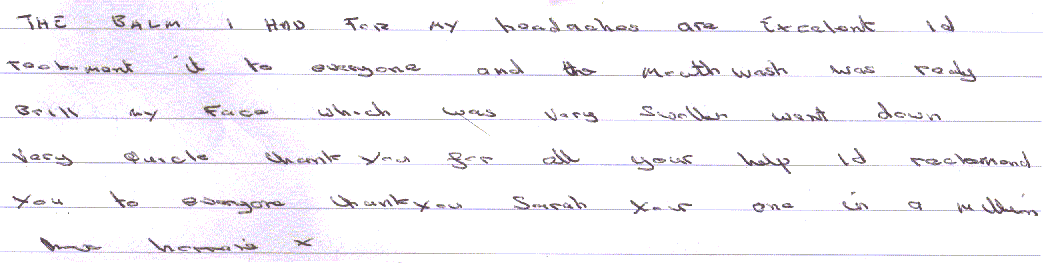 THE BALM i HAD FOR MY headaches are Excelent id
reckument it to everyone and the mouth wash was realy
Brill my Face which was very swollen went down
very quicle thank you for all your help id reckemond
you to everyone thankyou Sarah your one in a million
x